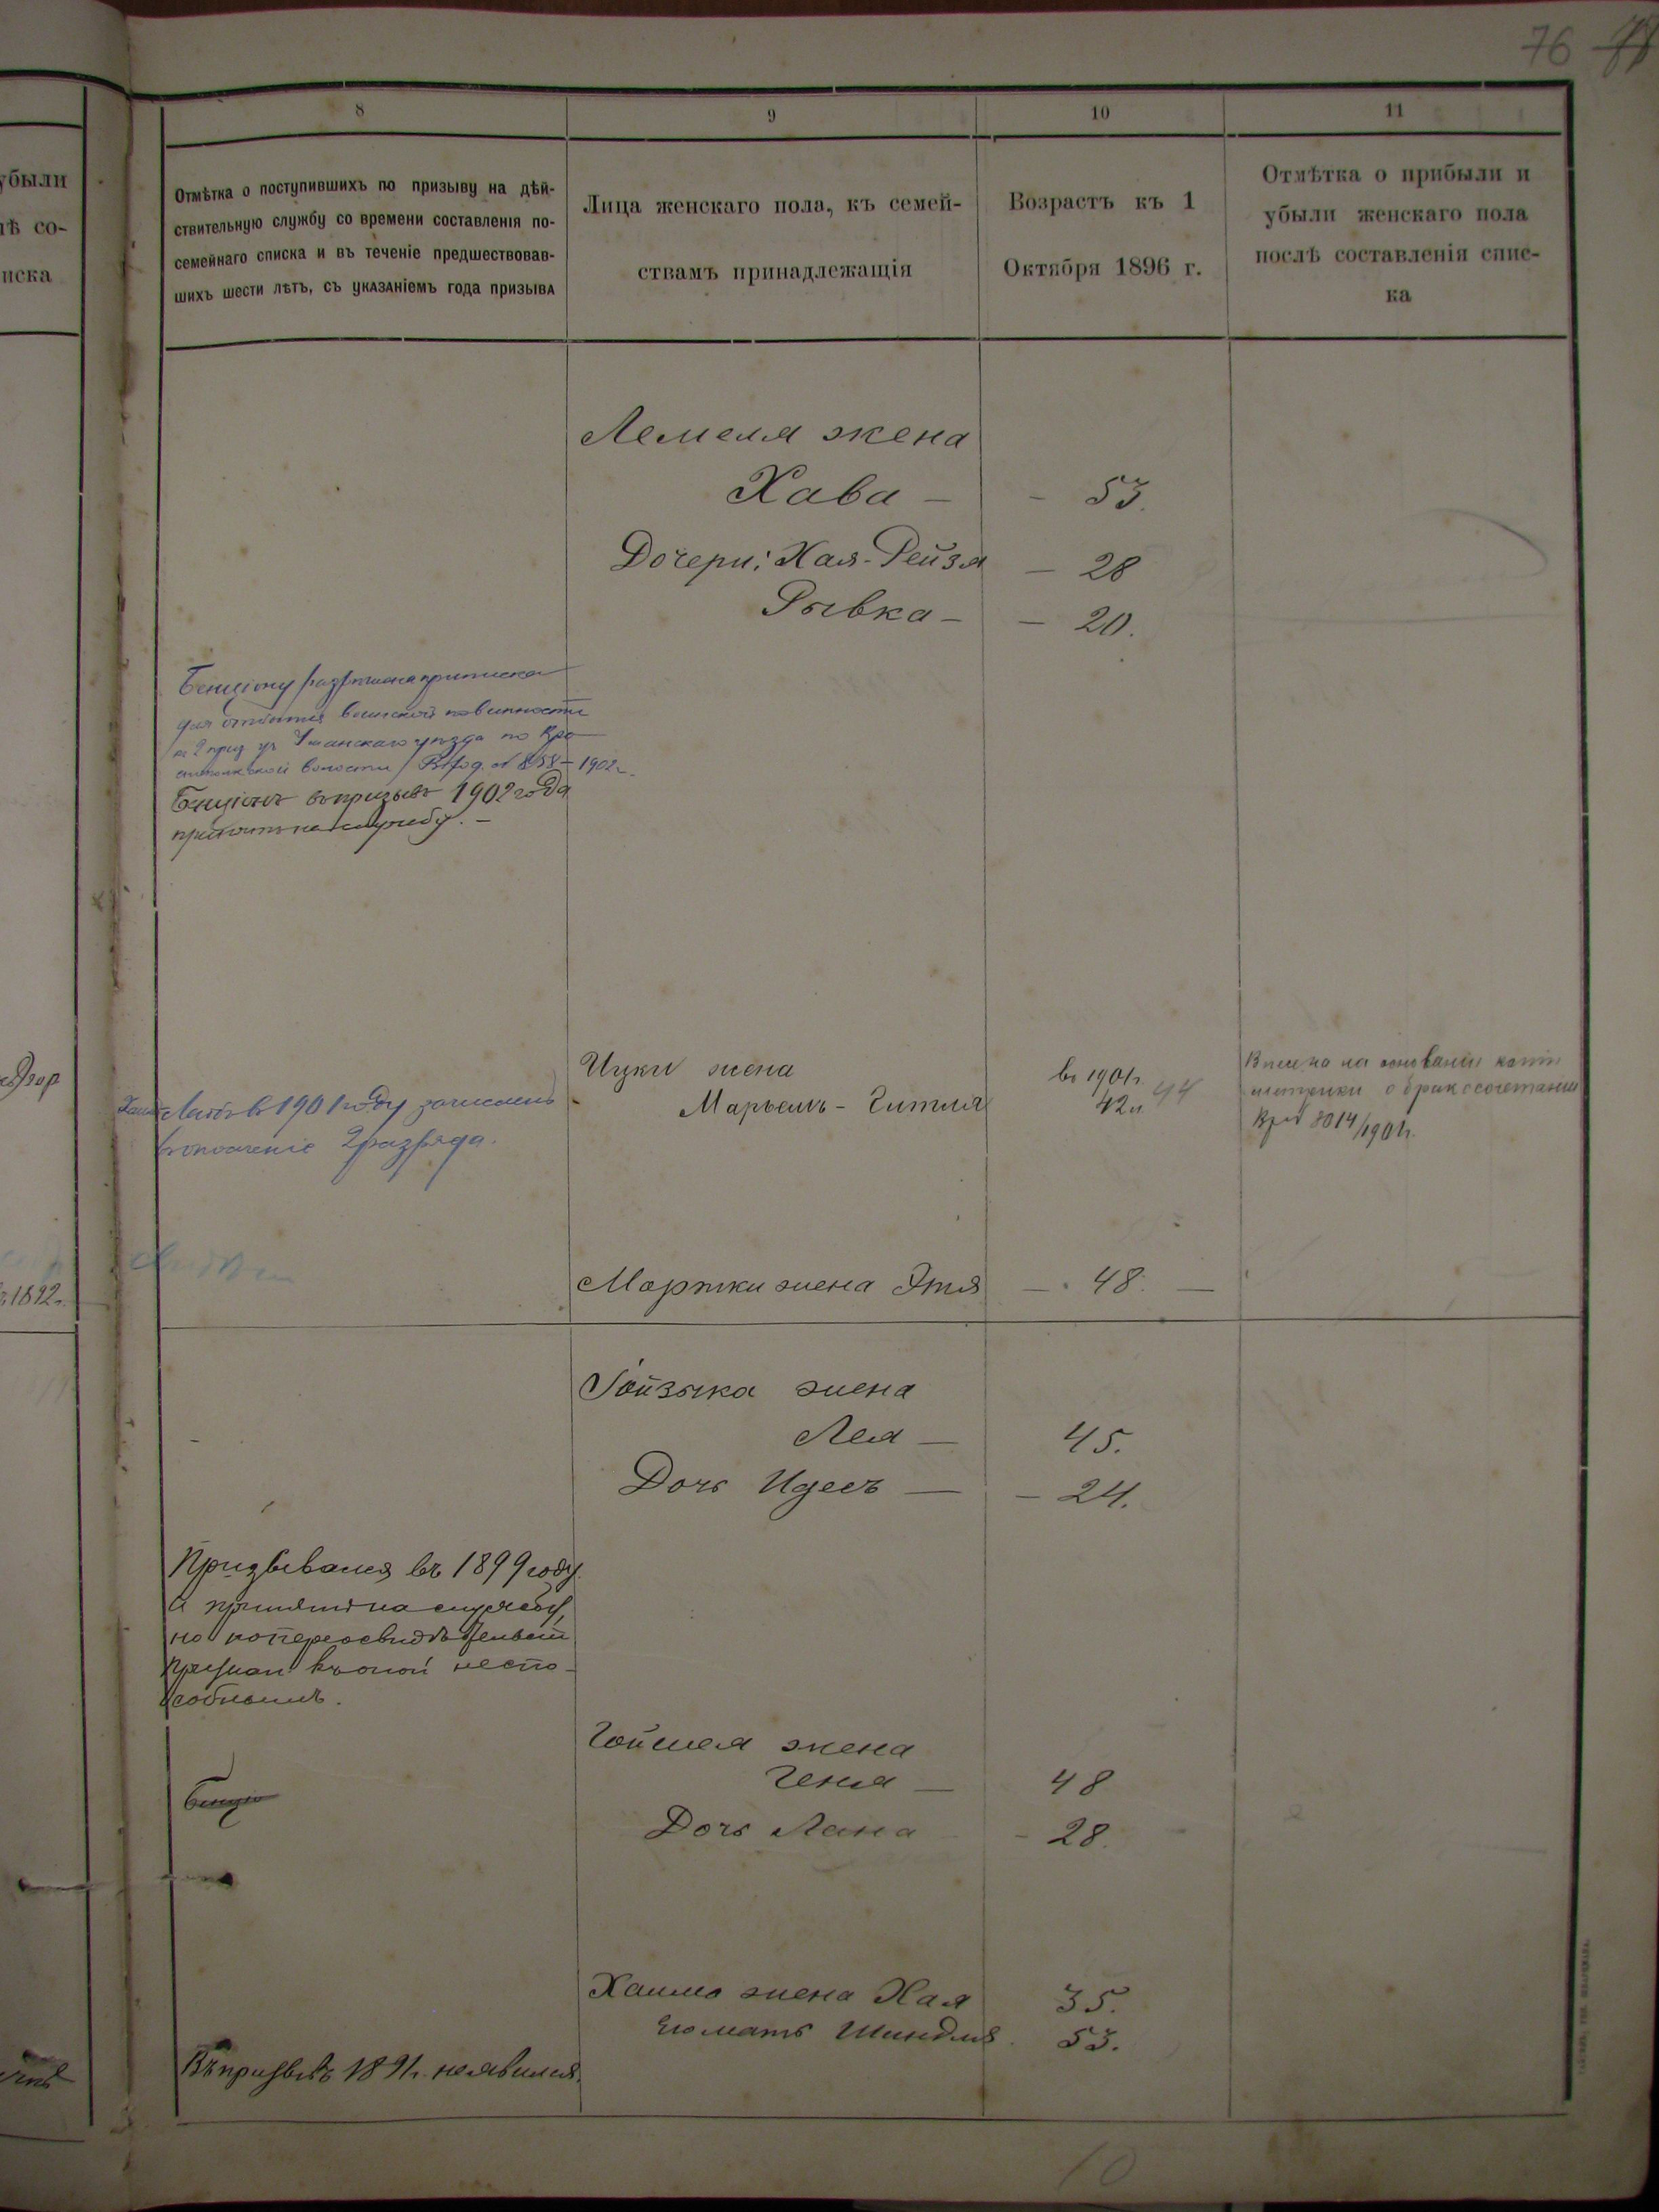 76
8
9
10
11
убыли
лѣ со-
писка
Отмѣтка о поступившихъ по призыву на дѣй-
ствительную службу со времени составленія по-
семейнаго списка и въ теченіе предшествовав-
шихъ шести лѣтъ, съ указаніемъ года призыва
Лица женскаго пола, къ семей-
ствамъ принадлежащія
Возрастъ къ 1
Октября 1896 г.
Отмѣтка о прибыли и
убыли женскаго пола
послѣ составленія спис-
ка
Лемеля жена
Хава – – 53.
Дочери: Хая-Рейзя – 28
Рывка – – 20.
Бенціону разрѣшена приписка
для отбытія воинской повинности
къ 2 приз. уч. Уманскаго уѣзда по
волости 1902 г.
Бенціонъ въ призывъ 1902 года
принятъ на службу. –
Ицки жена
Марьемъ-Гитля
въ 1901 г.
42 л. 44
на основаніи копіи
метрики о бракосочетаніи
8014/1901 г.
Лейбъ въ 1901 году зачисленъ
въ ополченіе 2 разряда.
1892 г.
Мортки жена Этя – 48. –
Іойзыка жена
Лея – 45.
Дочь Идесъ – – 24.
Призывался въ 1899 году
и принятъ на службу,
но по переосвидѣтельств.
признан къ оной неспо-
собнымъ.
Гойшея жена
Геня – 48
Дочь Лана – 28.
Хаима жена Хая 35.
его мать Шиндля. 53.
Въ призывъ 1891 г. не явился.
10